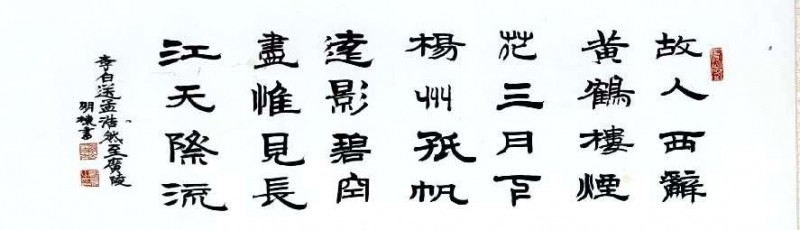 故人西辭
黄鶴樓煙
花三月下
楊州孤帆
遠影碧空
盡惟見長
江天際流
李白送孟浩然至廣陵
書